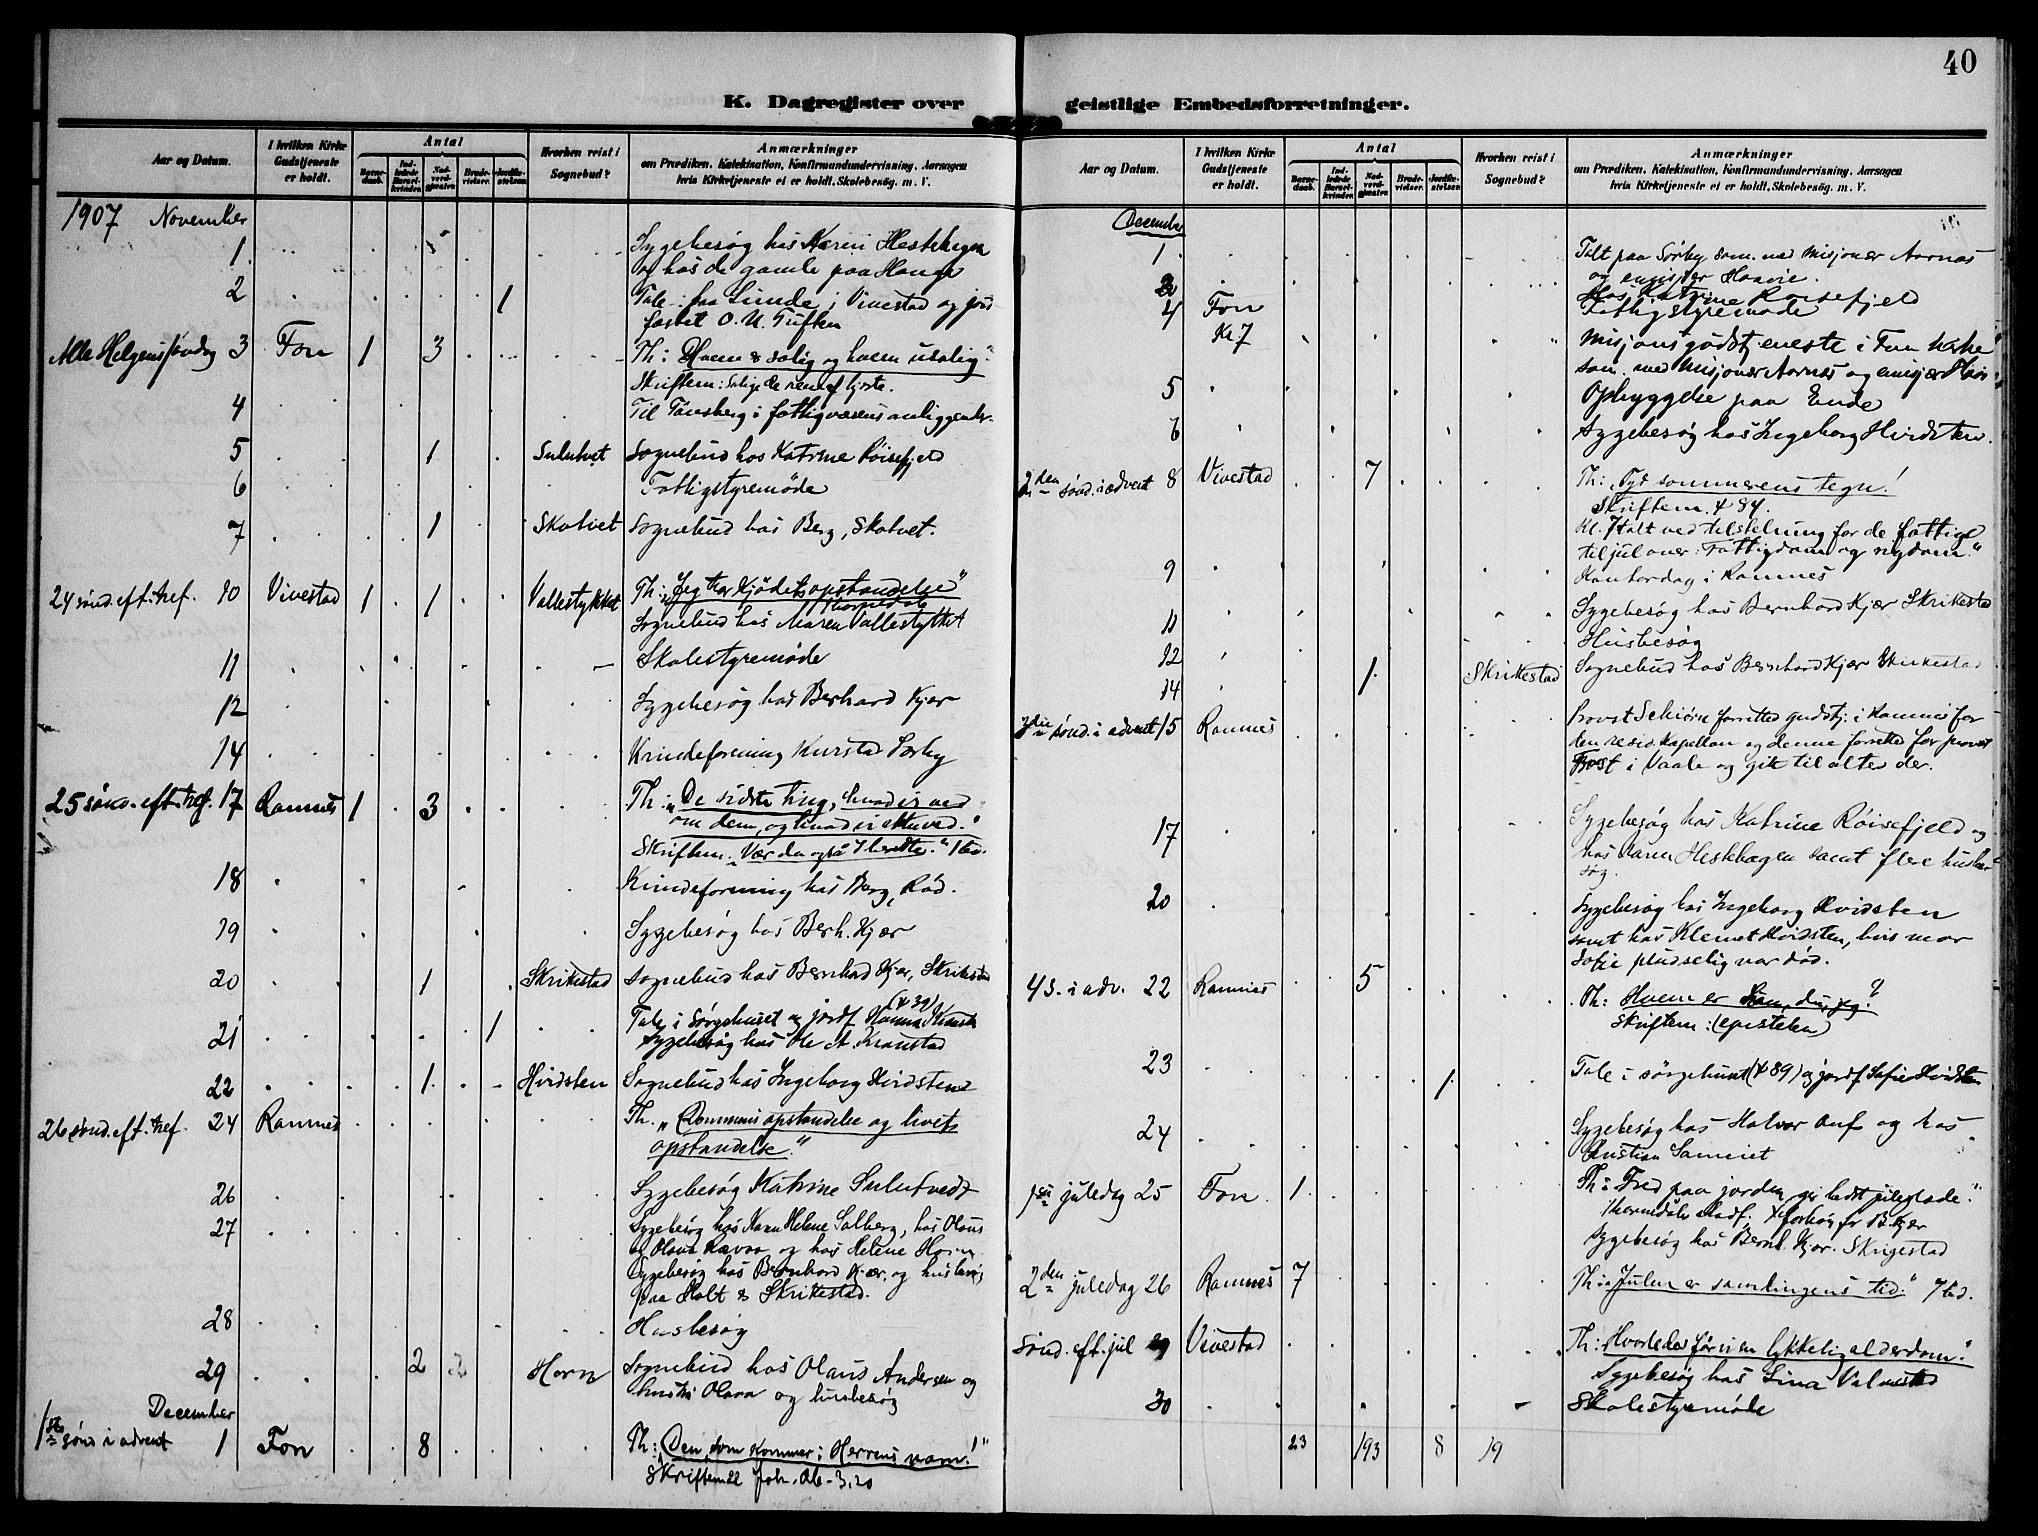 40
K. Dagregister over geistlige Embedsforretninger.
Aar og Datum.
I hvilken Kirke Gudstjeneste er holdt.
Antal
Barnedaab.
Indledede Barselkvinder
Nadverdgjester
Brudevielser.
Jordfæstelser.
Hvorhen reist i Sognebud?
Anmærkninger
om Prædiken, Katekisation, Konfirmandundervisning, Aarsagen
hvis Kirketjeneste ei er holdt, Skolebesög m. V.
1907 November
1. Sygebesøg hos Karen Hestehagen
og hos de gamle paa Hauge
2 1 Tale fra Linde i Vivestad og jord
fæstet O. U. Tuften
Alle Helgens søndag 3 Fon 1 3 Th: Hvem er salig og hvem usalig.
Skriftem: Salige de rene af hjerte.
4 Til Tønsberg i fattigvæsens anliggender.
5 1 Sulutvet Sognebud hos Katrine Røisefjeld
6 Fattigstyremøde
7 1 Skatvet Sognebud hos Berg, Skatvet.
24 sønd. eft. tref. 10 Vivestad 1 1 Vallestykket Th: "Jeg tror kjødets opstandelse"
Sognebud hos Maren Vallestykket
11 Skolestyremøde
12 Sygebesøg hos Berhard Kjær
14 Kvindeforening Kurstad Sørby
25 sønd. eft. tref. 17 Ramnes 1 3 Th: "De sidste ting, hvad vi ved
om dem, og hvad vi ikke ved."
Skriftem. "Vær du også I beredte."
18 Kvindeforening hos Berg, Rød.
19 Sygebesøg hos Berh. Kjær
20 1 Skrikestad Sognebud hos Bernhad Kjær, Skrikestad
21 1 Tale i Sørgehuset og jordf Hanna
Sygebesøg hos Ole A. Kranstad
22 1 Hvidsten Sognebud hos Ingeborg Hvidsten
26 sønd. eft. tref. 24 Ramnes Th. "Dommens opstandelse og livets
opstandelse."
26 Sygebesøg Katrine Sulutvedt
27 Sygebesøg hos Karen Helene Solberg, hos Olaus
og Olava Ravaa og hos Helene Horn
Sygebesøg hos Bernhard Kjær, og husbesøg
paa Holt & Skrikestad.
28 Husbesøg
29 2 Horn Sognebud hos Olaus Andersen og
hustru Olava og husbesøg
December
1ste sønd i advent 1 Fon 8 Th: "Den, som kommer i Herrens navn!"
Skriftem Joh. Ab. 3,20
Aar og Datum.
I hvilken Kirke Gudstjeneste er holdt.
Antal
Barnedaab.
Indledede Barselkvinder
Nadverdgjester
Brudevielser.
Jordfæstelser.
Hvorhen reist i Sognebud?
Anmærkninger
om Prædiken, Katekisation, Konfirmandundervisning, Aarsagen
hvis Kirketjeneste ei er holdt, Skolebesög m. V.
December
1. Talt paa Sørby sam. med misjonær Aarnes
og emisjær Haavie.
Hos Katrine Roisefjeld
Fattigstyremøde
4 Fon
Kl 7 Misjonsgudstjeneste i Fon kirke
sam. med misjonær Aarnes og emisjær
5 Opbyggelse paa Ende
6 Sygebesøg hos Ingeborg Hvidsten.
2den sønd. i advent 8 Vivestad 7 Th: "Tyd sommerens tegn!
Skriftem. 84.
Kl. 7 talt ved tilstelning for de fattige
til jul over: Fattigdom og rigdom."
9 Kontordag i Ramnes
11 Sygebesøg hos Bernhard Kjær Skrikestad
Husbesøg
12 1. Skrikestad Sognebud hos Bernhard Kjær Skrikestad
14
3die sønd. i advent 15 Ramnes Provst Schiørn forretted gudstj. i Ramnes for
den resid. kapellan og denne forretted for provst
i Vaale og gik til alters der.
17 Sygebesøg hos Katrine Røisefjeld og
hos Karen Hestehagen samt flere husbe
søg.
20 Sygebesøg hos Ingeborg Hvidsten
samt hos Klemet Hvidsten, hvis mor
Sofie pludselig var død.
4 s. i adv. 22 Ramnes 5 Th: Hvem er Han, du, jeg?
Skriftem: (epistelen)
23 1 Tale i sørgehuset (89) og jordf Sofie Hvidsten
24 Sygebesøg hos Halvor Auf og hos
Kristian Sameiet
1ste juledag 25 Fon 1 Th: "Fred paa jorden gir bedst juleglæde."
Sygebesøg hos Bernh. Kjær. Skrigestad
2den juledag 26 Ramnes 7 Th: "Julen er samlingens tid."
Sønd. eft. jul 29 Vivestad Th: "Hvorledes får vi en lykkelig alderdom."
Sygebesøg hos Lina Valmestad
30 Skolestyremøde
23 193 8 19